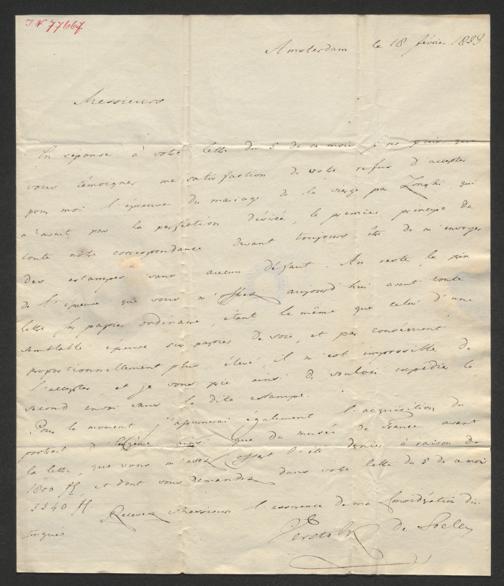 I.N 77667
Amsterdam le 18 février
Messieurs
En réponse à votre lettre du 5 de ce mois, je ne puis que
vous témoigner ma satisfaction de votre refus d'accepter
pour moi l'épreuve du mariage de la vierge par Longhi, qui
n'avait pas la perfection désirée, le premier principe de
toute notre correspondance devant toujours être de m'envoyer
des estampes sans aucun défaut. Au reste, le prix
de l'épreuve que vous m'offrez aujourd'hui avant toute
lettre sur papier ordinaire, étant le même que celui d'une
semblable épreuve sur papier de soie, et par conséquent
proportionnellement plus élevé, il m'est impossible de
l'accepter et je vous prie ainsi de vouloir expédier le
second envoi sans la dite estampe.
Pour le moment également l'acquisition du
portrait que du musée de france avant
la lettre, que vous m'avez offert à raison de
1800 ff et dont vous demandiez dans votre lettre du 5 de
2240 ff
Recevez Messieurs l'assurance de ma considération
Verstolk De Soelen